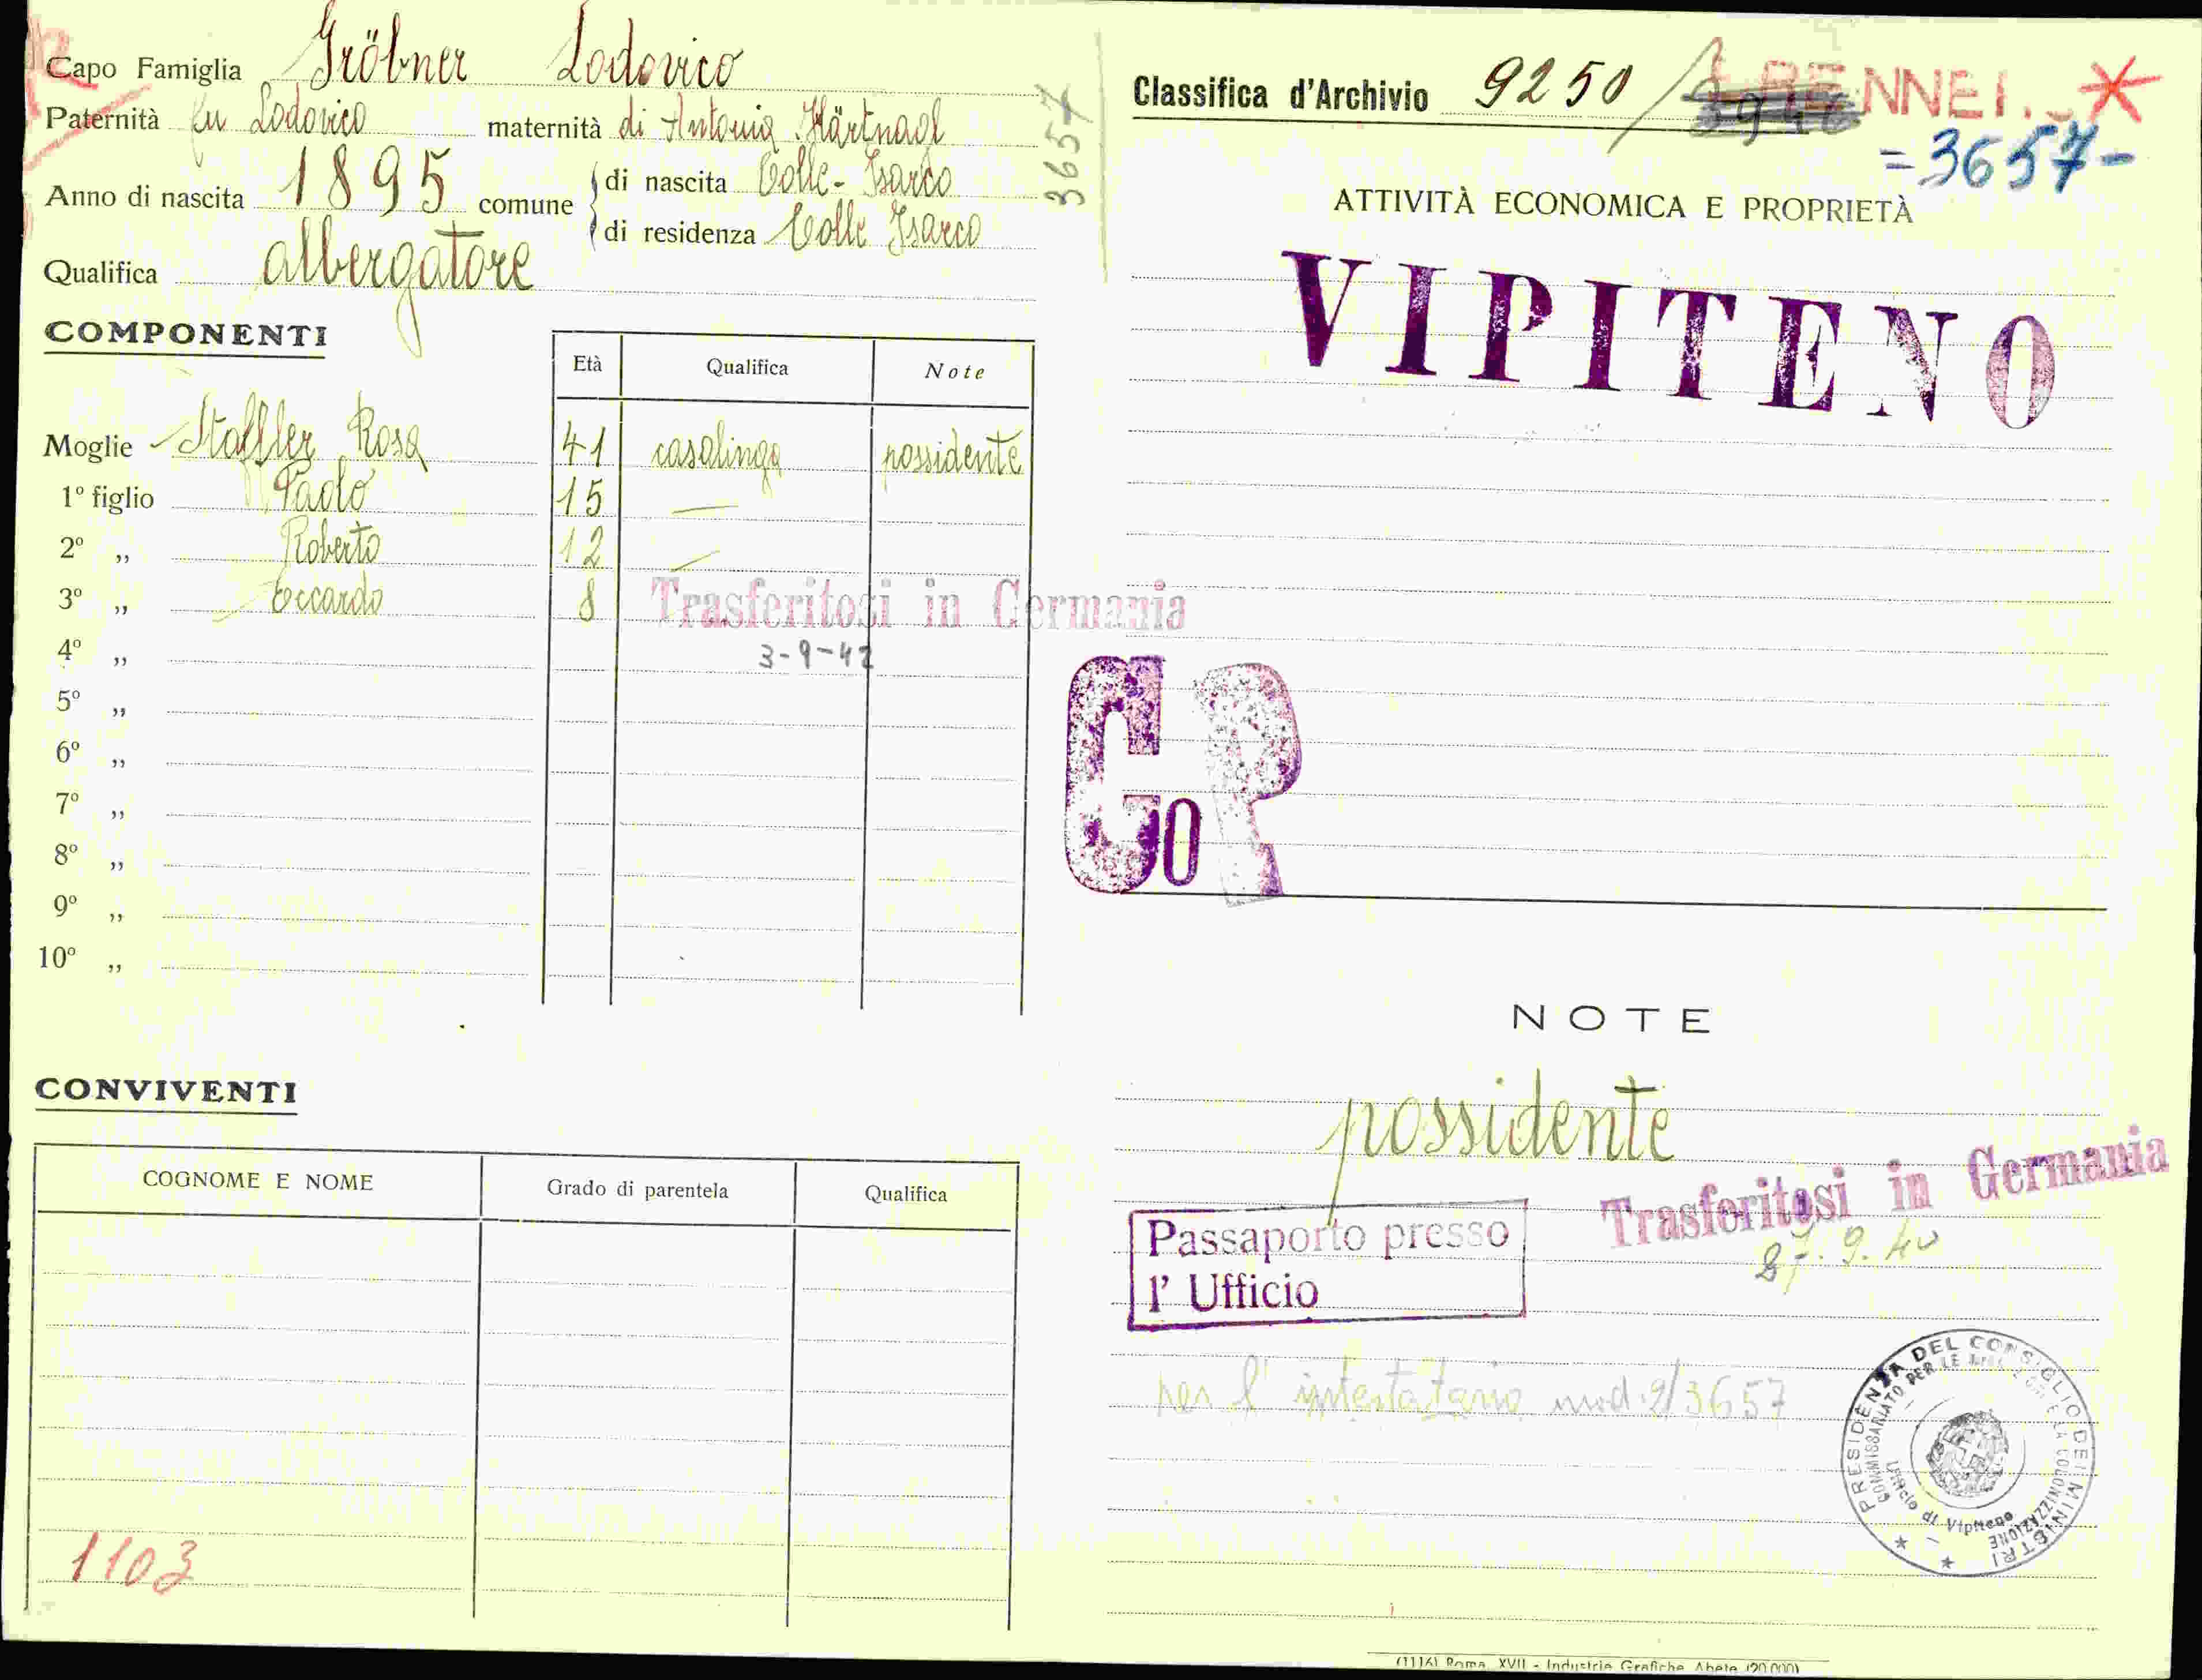 Capo Famiglia Gröbner Lodovico
Paternità fu Lodovico maternità di Antonia Härtnagl
Anno di nascita 1895 comune di nascita Colle-Isarco
di residenza Colle Isarco
Qualifica albergatore
3657
COMPONENTI
Età Qualifica Note
Moglie Staffler Rosa 41 casalinga possidente
1º figlio Paolo 15 —
2º „ Roberto 12 —
3º „ Eccardo 8
Trasferitosi in Germania
4º „ 3-9-42
5º „
6º „
7º „
8º „
9º „
10º „
CONVIVENTI
COGNOME E NOME Grado di parentela Qualifica
1103
Classifica d'Archivio 9250/
= 3657 -
ATTIVITÀ ECONOMICA E PROPRIETÀ
VIPITENO
Co R
NOTE
possidente
Trasferitosi in Germania
27.9.40
Passaporto presso
l' Ufficio
per l'intestatario mod. 2/3657
PRESIDENZA DEL CONSIGLIO DEI MINISTRI
COMMISSARIATO PER LE MIGRAZIONI E LA COLONIZZAZIONE
Ufficio di Vipiteno
(1116) Roma, XVII - Industrie Grafiche Abete (20.000)